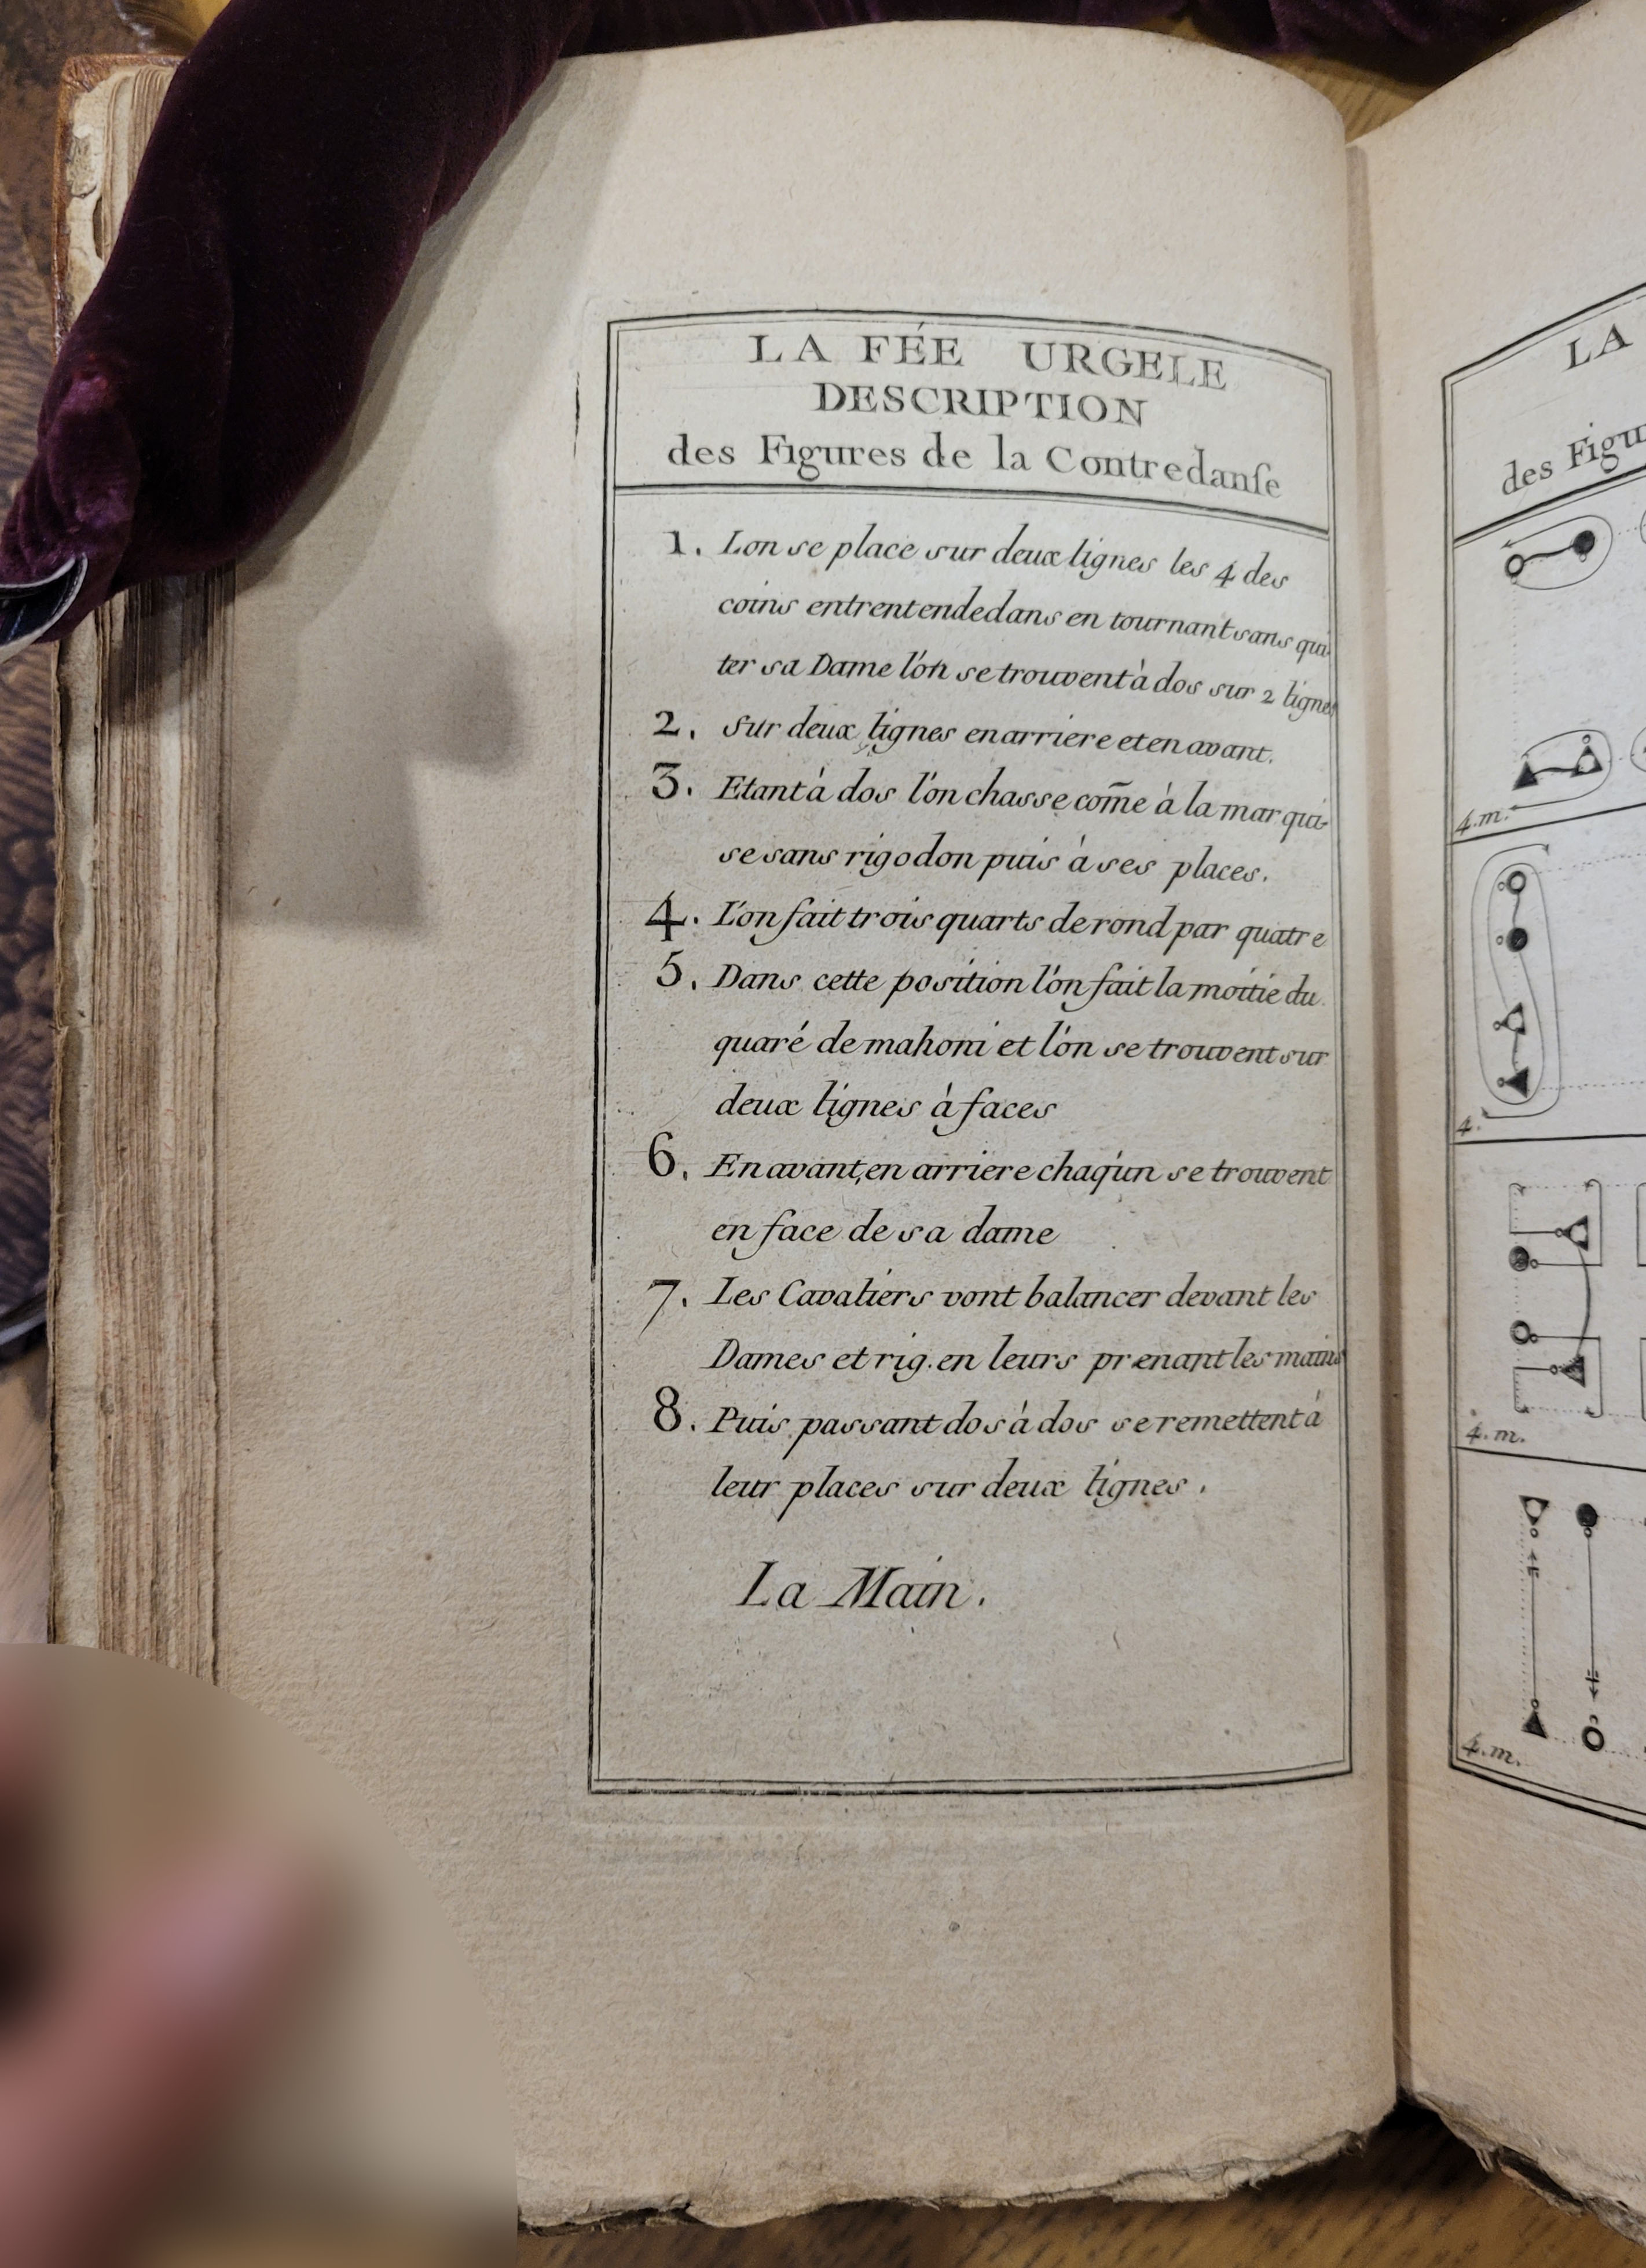 LA FÉE URGELE
DESCRIPTION
des Figures de la Contredanſe
1. Lon se place sur deux lignes les 4 des
coins entrent endedans en tournant sans qui-
ter sa Dame l'on se trouvent à dos sur 2 lignes
2. Sur deux lignes en arriere et en avant.
3. Etant à dos l'on chasse com̄e à la marqui-
se sans rigodon puis à ses places.
4. L'on fait trois quarts de rond par quatre
5. Dans cette position l'on fait la moitié du
quaré de mahoni et l'on se trouvent sur
deux lignes à faces
6. En avant, en arriere chaq'un se trouvent
en face de sa dame
7. Les Cavaliers vont balancer devant les
Dames et rig. en leurs prenant les mains
8. Puis passant dos à dos se remettent à
leur places sur deux lignes.
La Main.
LA
des Figu
4.m.
4.
4.m.
4.m.